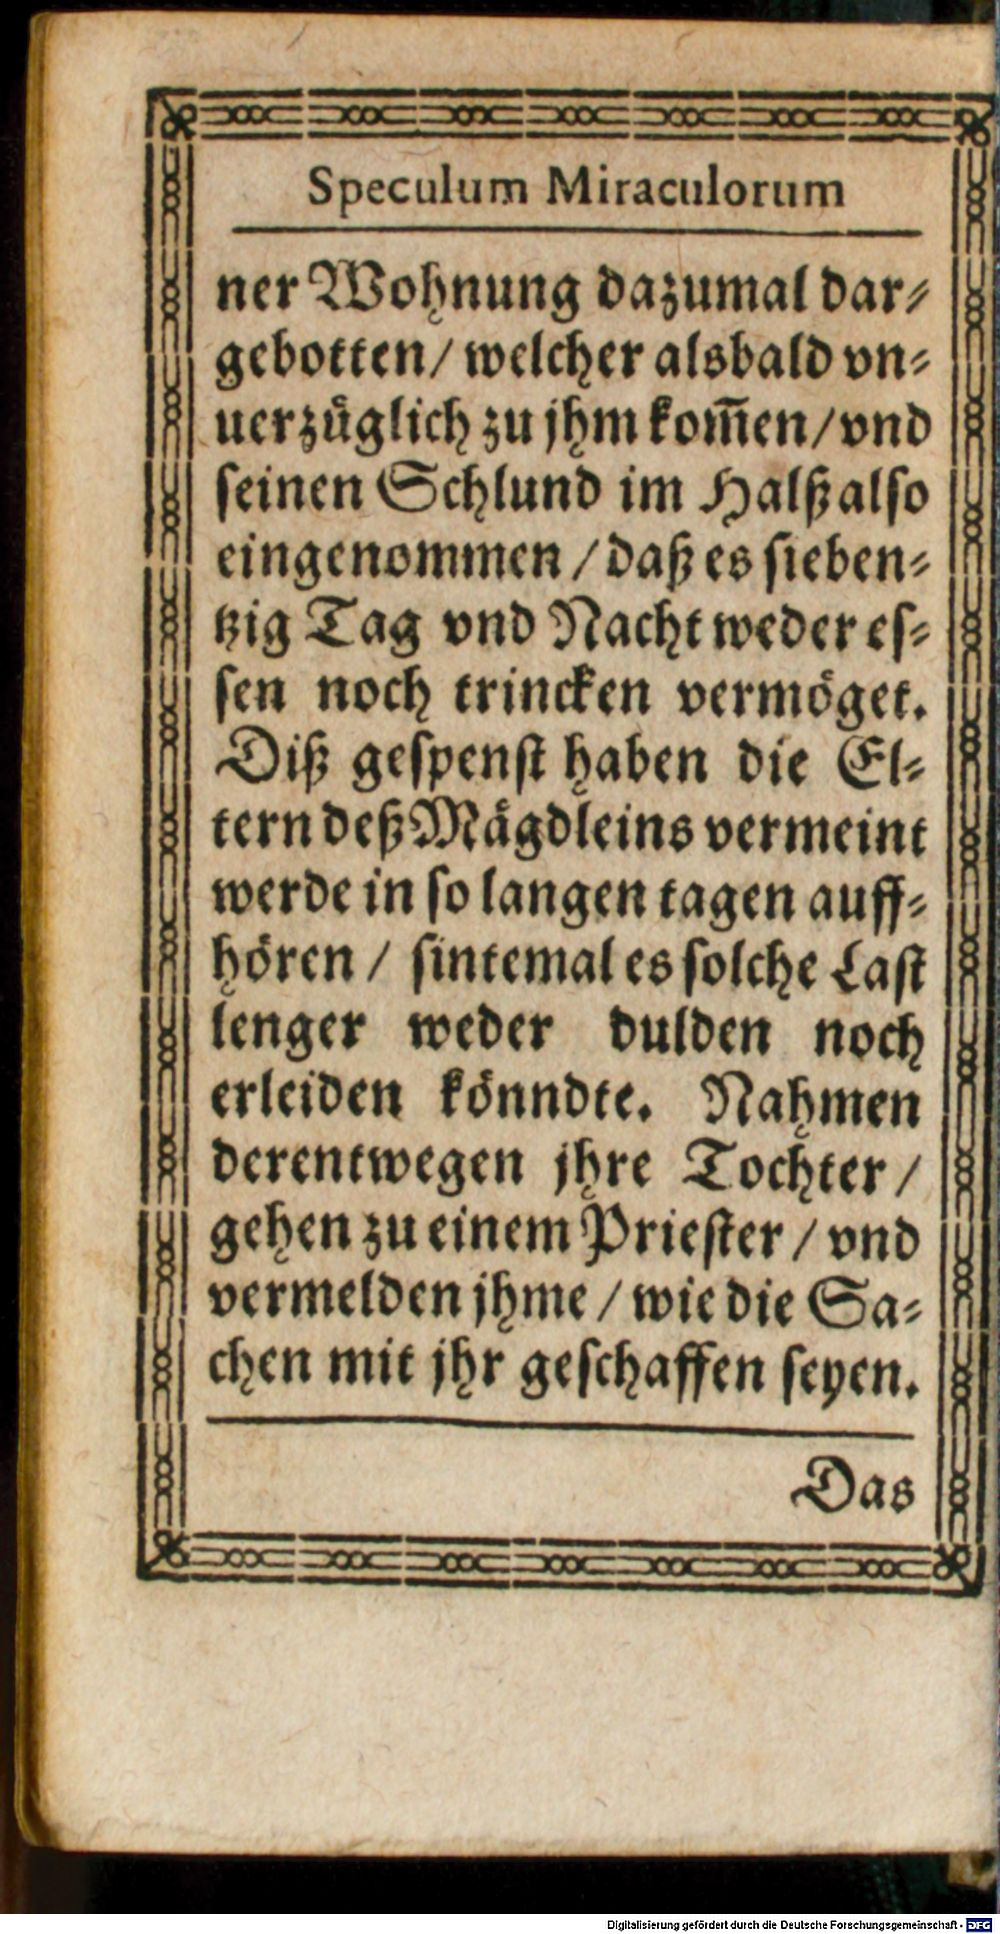 Speculum Miraculorum
ner Wohnung dazumal dar⸗
gebotten/ welcher alsbald vn⸗
uerzüglich zu jhm kom̄en/ vnd
seinen Schlund im Halß also
eingenommen / daß es sieben⸗
tzig Tag vnd Nacht weder es⸗
sen noch trincken vermöget.
Diß gespenst haben die El⸗
tern deß Mägdleins vermeint
werde in so langen tagen auff⸗
hören / sintemal es solche Last
lenger weder dulden noch
erleiden könndte. Nahmen
derentwegen jhre Tochter /
gehen zu einem Priester / vnd
vermelden jhme / wie die Sa⸗
chen mit jhr geschaffen seyen.
Das
Digitalisierung gefördert durch die Deutsche Forschungsgemeinschaft - DFG